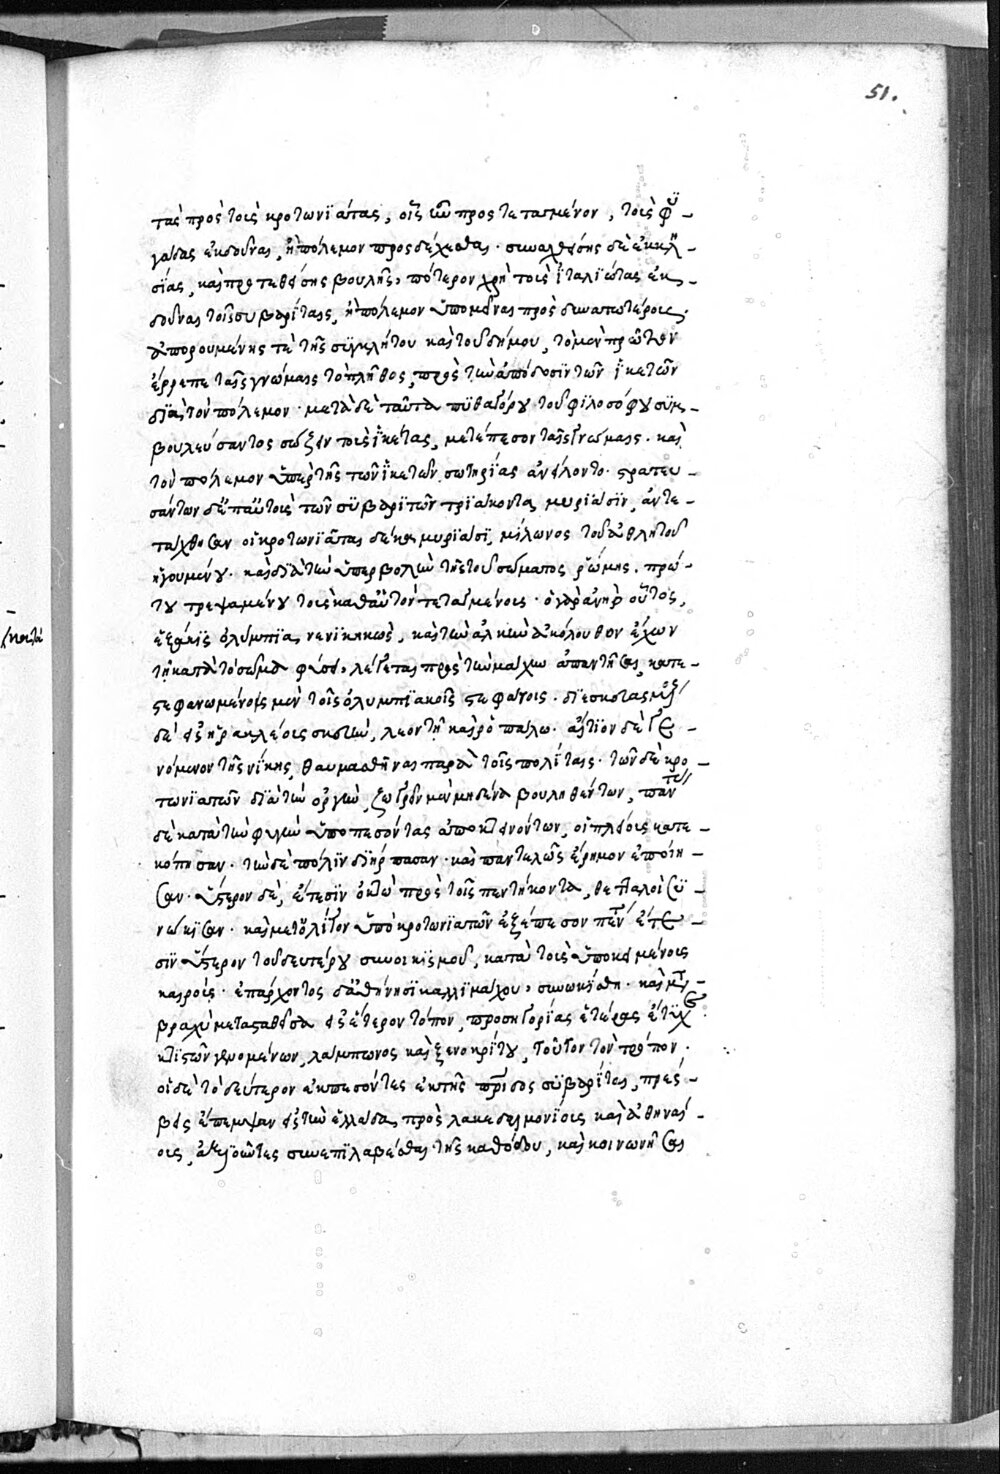 51.
τὰς πρὸς τοὺς κροτωνϊάτας, οἷς ἦν προστεταγμένον, τοὺς φϋ-
γάδας ἐκδοῦναι, ἢ πόλεμον προσδέχεσθαι. συναχθείσης δὲ ἐκκλη-
σίας, καὶ προτεθείσης βουλῆς, πότερον χρὴ τοὺς ἰταλϊώτας ἐκ-
δοῦναι τοῖς συβαρίταις, ἢ πόλεμον ὑπομεῖναι πρὸς δυνατωτέρους.
ἀπορουμένης τὲ τῆς συγκλήτου καὶ τοῦ δήμου, τὸ μὲν πρῶτον
ἔρρεπε ταῖς γνώμαις τὸ πλῆθος, πρὸς τὴν ἀπόδοσιν τῶν ἱκετῶν
δϊὰ τὸν πόλεμον. μετὰ δὲ ταῦτα πϋθαγόρου τοῦ φϊλοσόφου συμ-
βουλεύσαντος σώζειν τοὺς ἱκέτας, μετέπεσον ταῖς γνώμαις. καὶ
τὸν πόλεμον ὑπὲρ τῆς τῶν ἱκετῶν σωτηρίας ἀνείλοντο. στρατευ-
σάντων δ' ἐπ' αὐτοὺς τῶν σϋβαρϊτῶν τρϊάκοντα μυριάσϊν, ἀντε-
τάχθησαν οἱ κροτωνϊᾶται δέκα μυρϊάσϊ, μίλωνος τοῦ ἀθλητοῦ
ἡγουμένου. καὶ δϊὰ τὴν ὑπερβολὴν τῆς τοῦ σώματος ῥώμης, πρώ-
του τρεψαμένου τοὺς καθ' αὑτὸν τεταγμένους. ὁ γὰρ ἀνὴρ οὗτος,
ἑξάκις ὀλύμπϊα νενϊκηκὼς, καὶ τὴν ἀλκὴν ἀκόλουθον ἔχων
τῇ κατὰ τὸ σῶμα φύσει, λέγεται πρὸς τὴν μάχην ἀπαντῆσαι, κατε-
στεφανωμένος μὲν τοῖς ὀλυμπϊακοῖς στεφάνοις. δϊεσκευασμένος
δὲ εἰς ἡρακλέους σκευὴν, λεοντῇ καὶ ῥοπάλω. αἴτϊον δὲ γε-
νόμενον τῆς νίκης, θαυμασθῆναι παρὰ τοῖς πολίταις. τῶν δὲ κρο-
τωνϊατῶν δϊὰ τὴν ὀργὴν, ζωγρεῖν μὲν μηδένα βουληθέντων, πάντας
δὲ κατὰ τὴν φυγὴν ὑποπεσόντας ἀποκτεινόντων, οἱ πλείους κατε-
κόπησαν. τὴν δὲ πόλϊν δϊήρπασαν. καὶ παντελῶς ἔρημον ἐποίη-
σαν. ὕστερον δὲ, ἔτεσϊν ὀκτὼ πρὸς τοῖς πεντήκοντα, θετταλοὶ σϋ-
νώκϊσαν. καὶ μετ' ὀλίγον ὑπὸ κροτωνϊατῶν ἐξέπεσον πέντε ἔτε-
σϊν ὕστερον τοῦ δευτέρου συνοικϊσμοῦ, κατὰ τοὺς ὑποκειμένους
καιρούς. ἐπ' ἄρχοντος δ' ἀθήνησϊ καλλϊμάχου, συνωκίσθη. καὶ μετὰ
βραχὺ μετασταθεῖσα εἰς ἕτερον τόπον, προσηγορίας ἑτέρας ἔτϋχε
κτϊστῶν γενομένων, λάμπωνος καὶ ξενοκρίτου, τοῦτον τὸν τρόπον.
οἱ δὲ τὸ δεύτερον ἐκπεσόντες ἐκ τῆς πατρίδος σϋβαρῖται, πρέσ-
βεις ἔπεμψαν εἰς τὴν ἑλλάδα πρὸς λακεδαιμονίους καὶ ἀθηναί-
ους, ἀξϊοῦντες συνεπϊλαβέσθαι τῆς καθόδου, καὶ κοινωνῆσαι